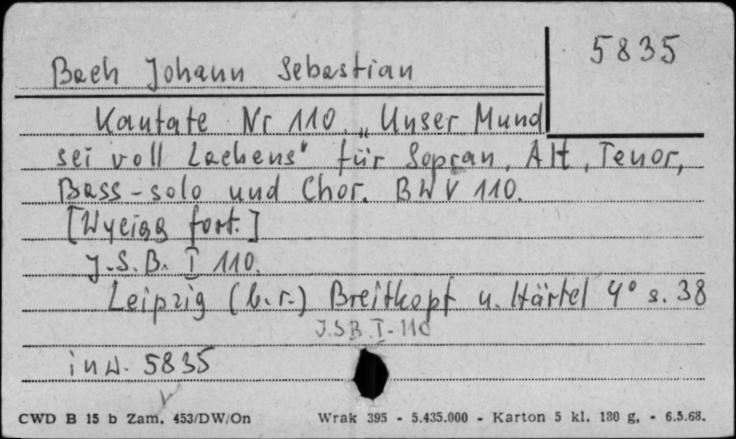 5835
Bach Johann Sebastian
Kantate Nr 110. „Unser Mund
sei voll Lachens" für Sopran, Alt, Tenor,
Bass-solo und Chor. BWV 110.
[Wyciąg fort.]
J.S.B. I 110.
Leipzig (b.r.) Breitkopf u. Härtel 4° s. 38
J.SB.I-110
inw. 5835
CWD B 15 b Zam. 453/DW/On Wrak 395 - 5.435.000 - Karton 5 kl. 180 g. - 6.5.68.